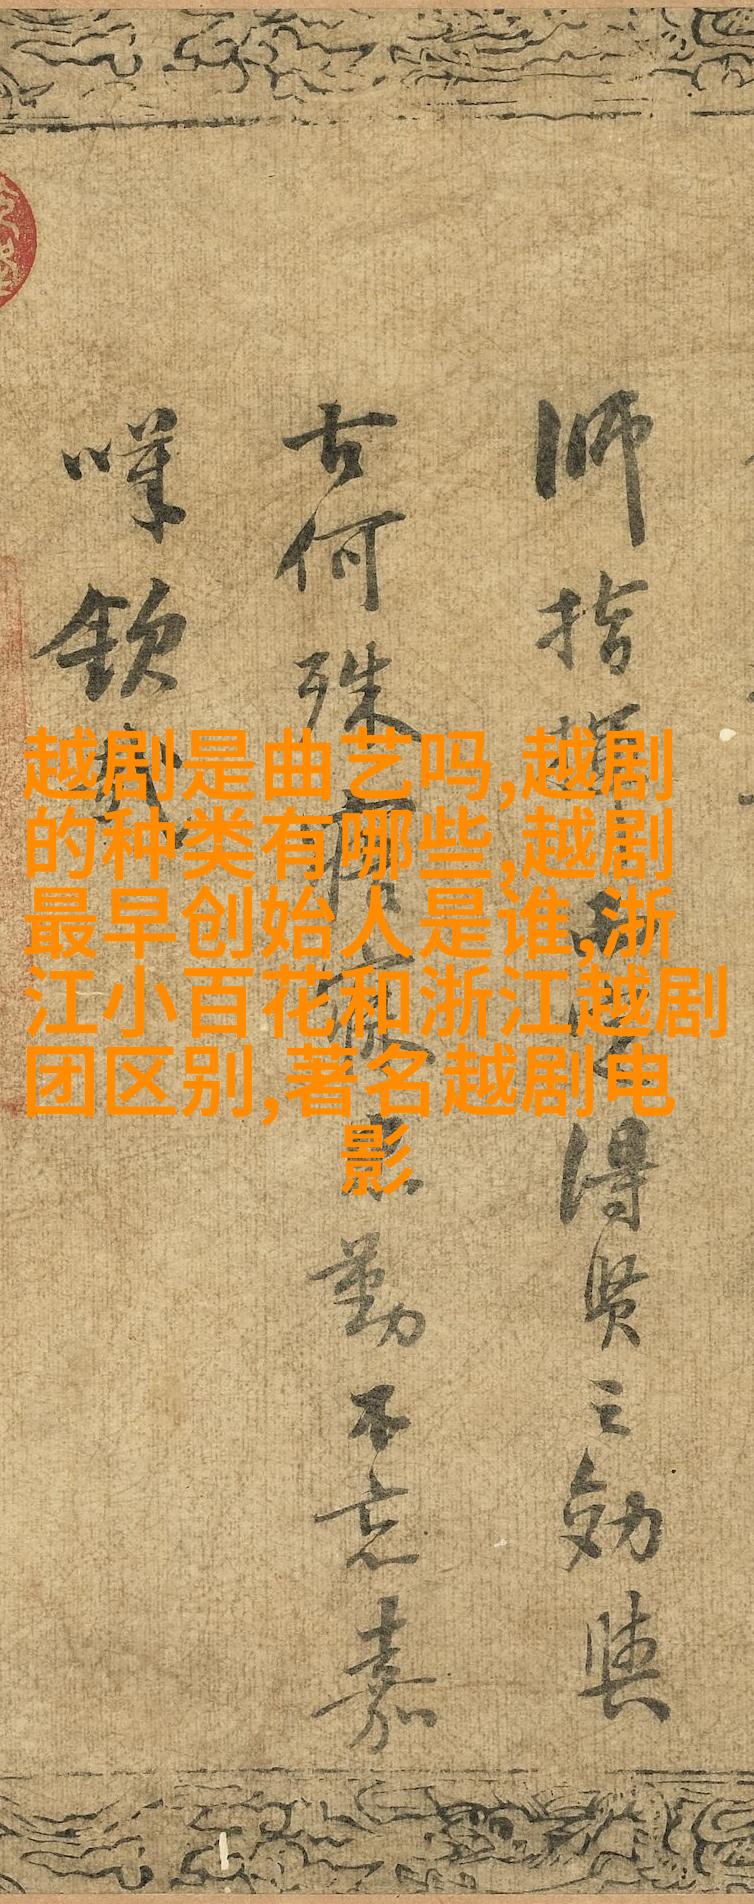 越剧是曲艺吗,越剧
的种类有哪些,越剧
最早创始人是谁,浙
江小百花和浙江越剧
团区别,著名越剧电
影
師指揮得賢之効與
古何殊寤寐忠勤不忘嘉
嘆欽哉